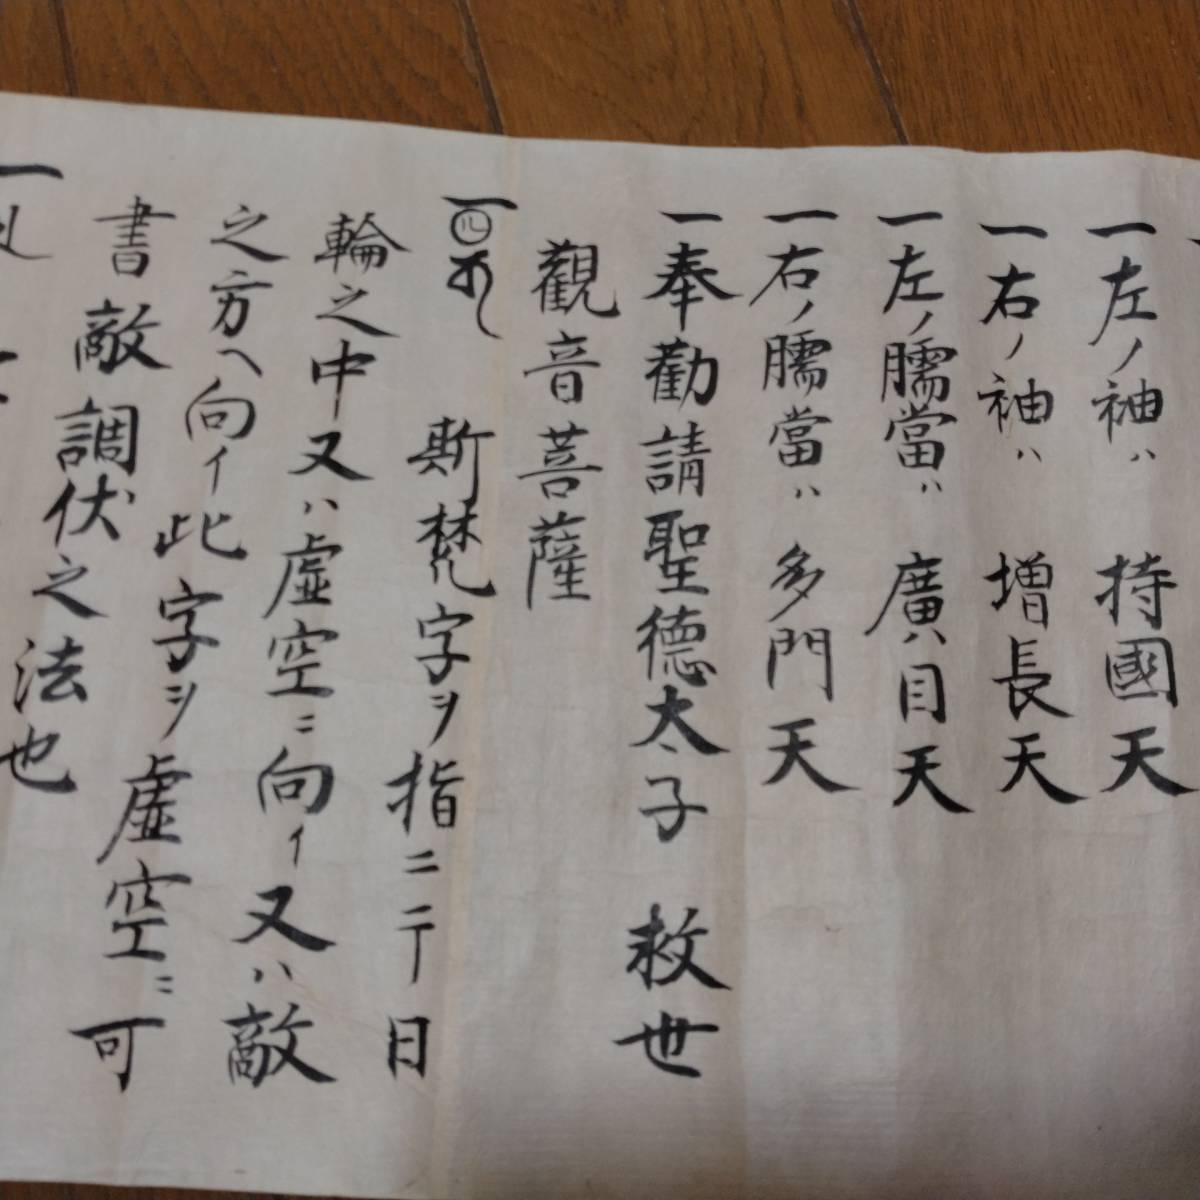 一左ノ袖ハ 持國天
一右ノ袖ハ 増長天
一左ノ臑當ハ 廣ハ目天
一右ノ臑當ハ 多門天
一奉勸請聖德太子 救世
觀音菩薩
一 斯梵字ヲ指ニテ日
輪之中又ハ虚空ニ向イ又ハ敵
之方ヘ向イ此字ヲ虚空ニ可
書敵調伏之法也
一